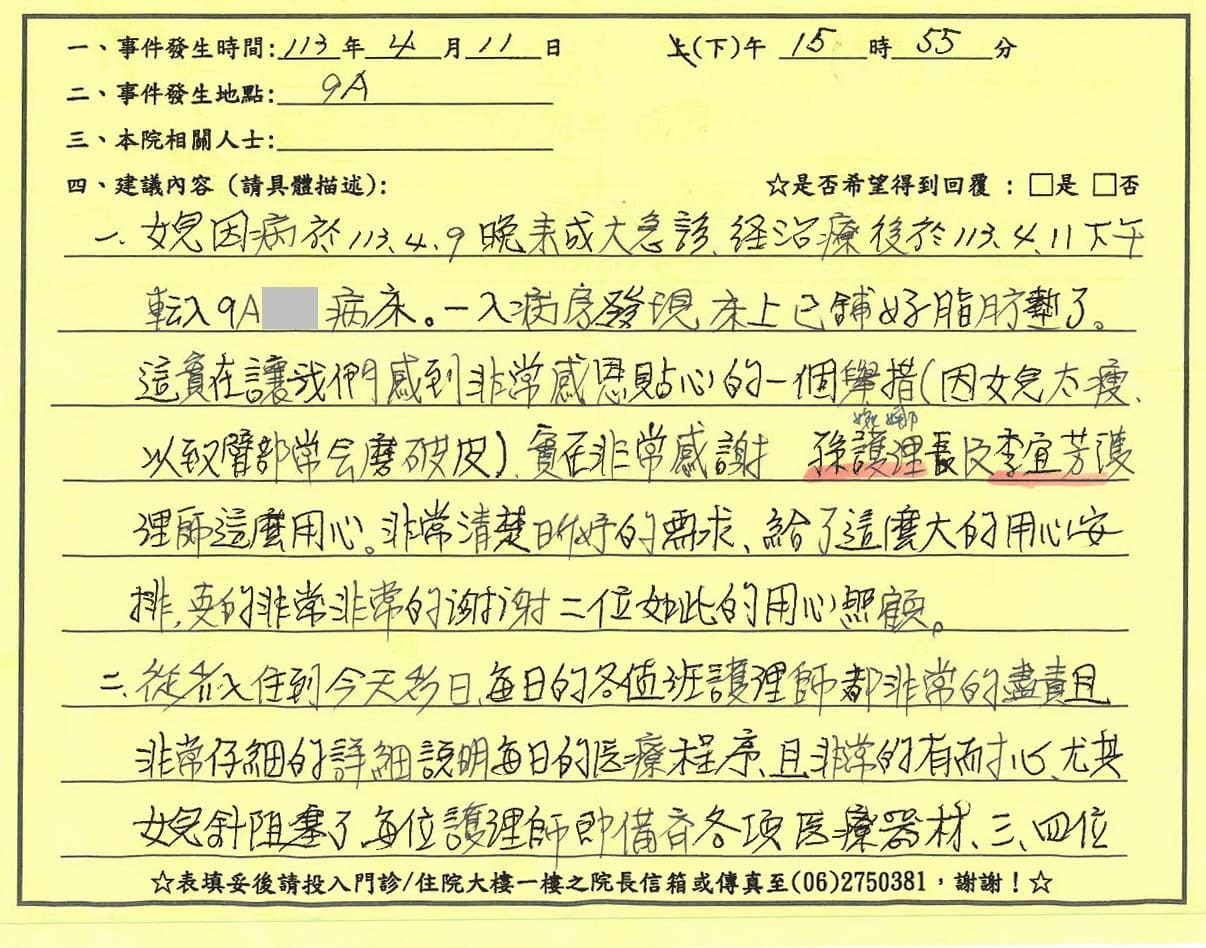 一、事件發生時間:113年4月11日 上(下)午 15時55分
二、事件發生地點: 9A
三、本院相關人士:
四、建議內容(請具體描述): ☆是否希望得到回覆:□是 □否
一、女兒因病於113.4.9晚來成大急診、経治療後於113.4.11下午
転入9A 病床。一入病房發現床上已鋪好脂肪墊了。
這實在讓我們感到非常感恩貼心的一個舉措(因女兒太瘦、
婉娜
以致臀部常会磨破皮)、實在非常感謝 孫護理長及李宜芳護
理師這麼用心。非常清楚的需求、給了這麼大的用心安
排,真的非常非常的謝謝二位如此的用心照顧。
二、從入住到今天多日、每日的各值班護理師都非常的盡責且
非常仔細的詳細說明每日的医療程序、且非常的有耐心、尤其
女兒針阻塞了、每位護理師即備齊各項医療器材、三、四位
☆表填妥後請投入門診/住院大樓一樓之院長信箱或傳真至(06)2750381,謝謝!☆